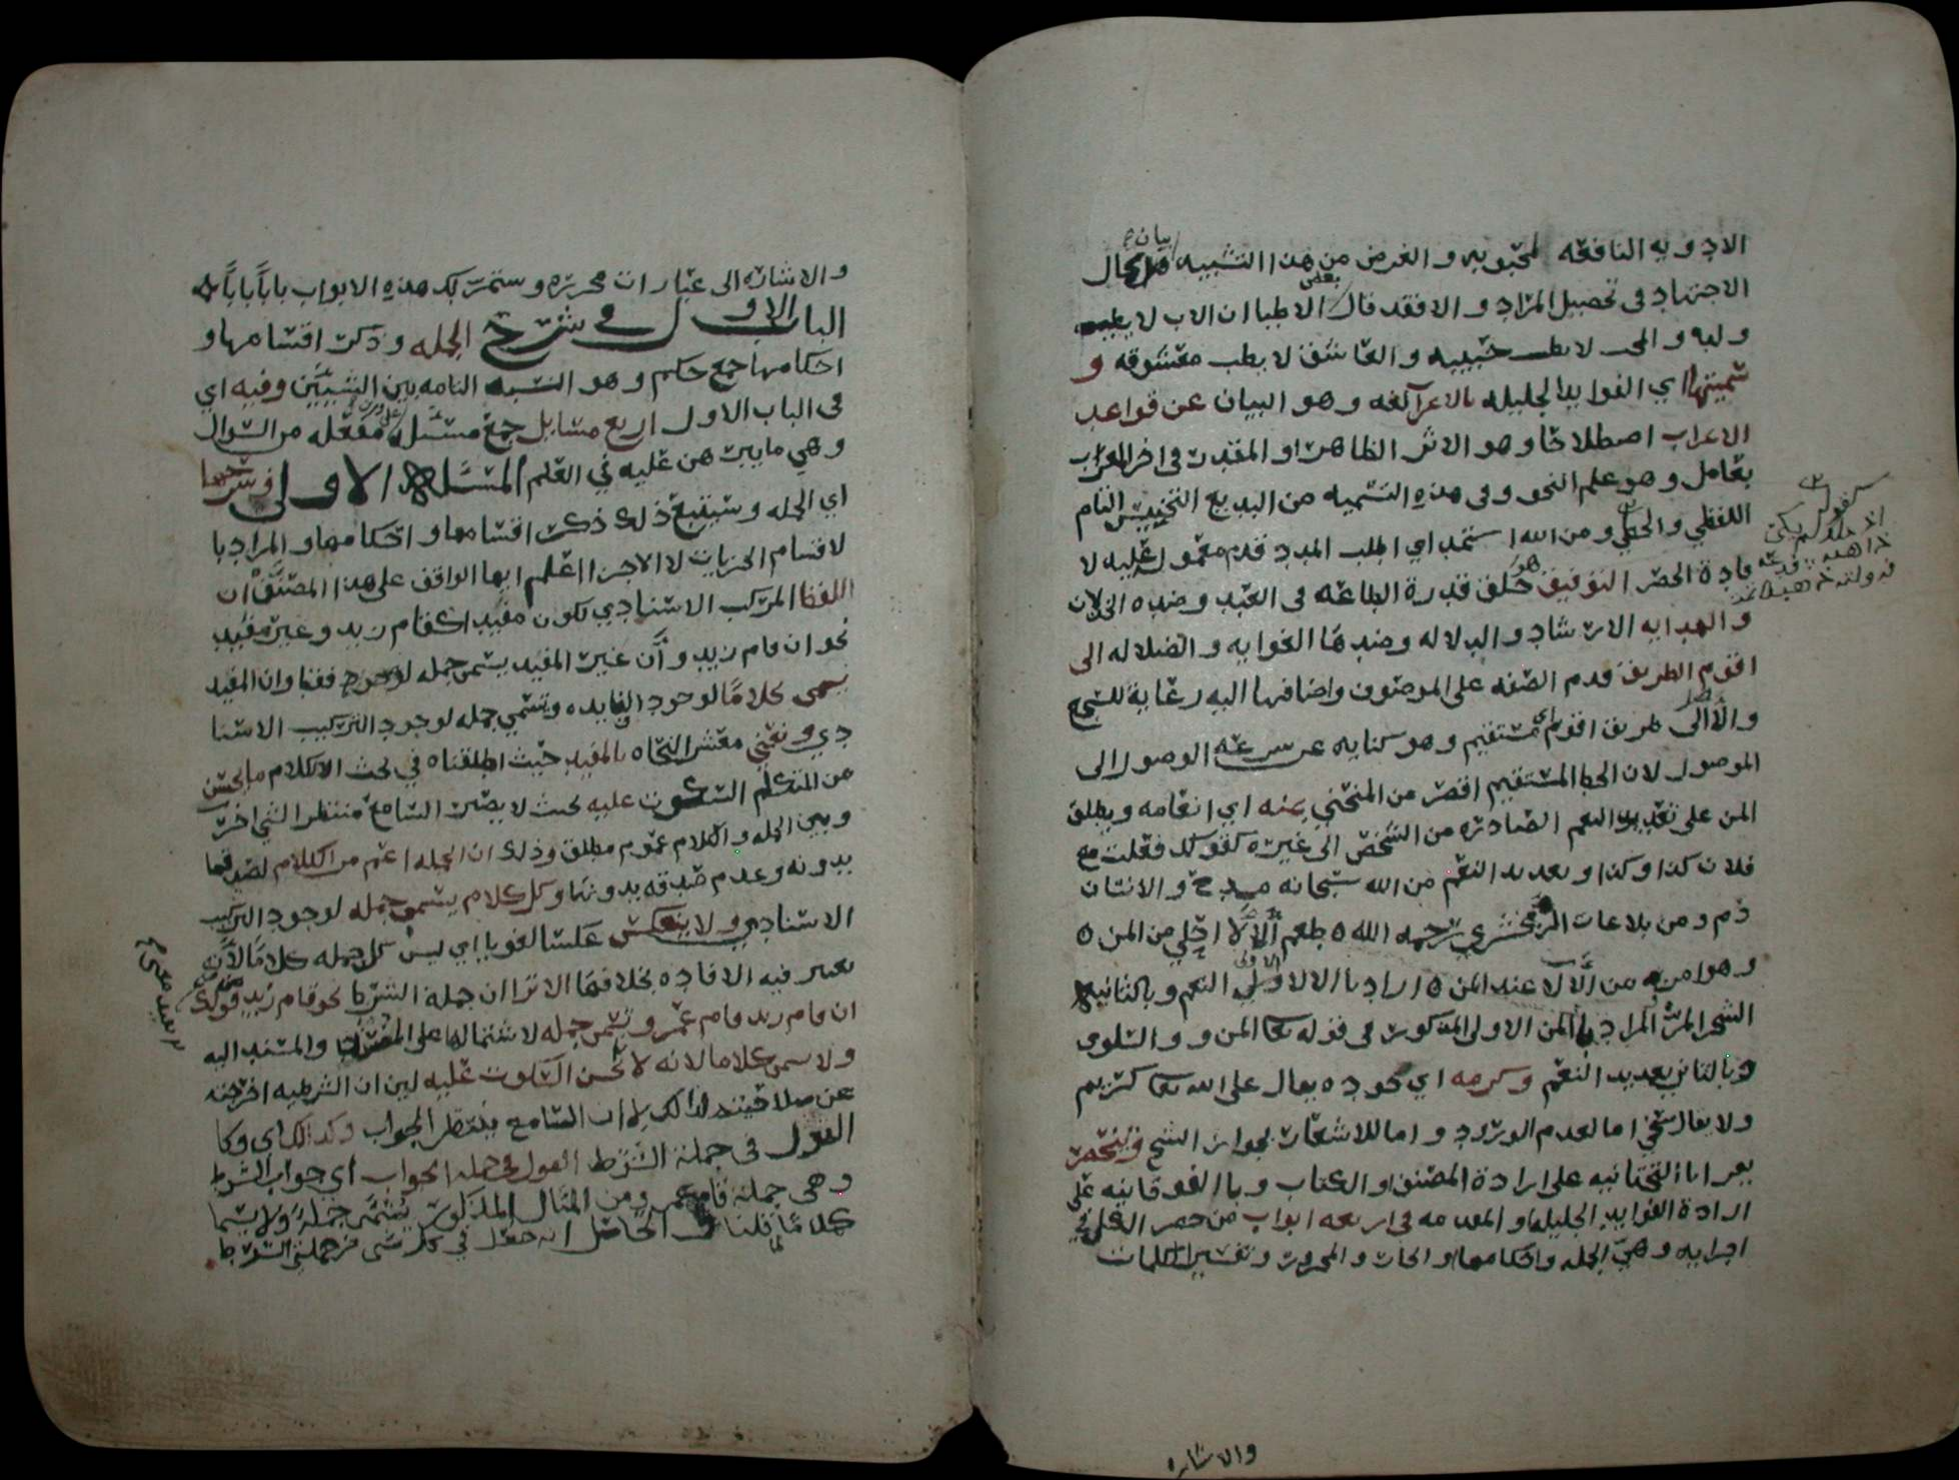 الادويه النافعه لمحبوبه والغرض من هذا التشبيه بيان كمال
الاجتهاد في تحصيل المراد والا فقد قال بعض الاطبا ان الاب لا يطب
ولده والمحب لا يطب حبيبه والعاشق لا يطب معشوقه و
سميتها اي الفوايد الجليله بالاعراب آلفه وهو البيان عن قواعد
الاعراب اصطلاحا وهو الاثر الظاهر او المقدر في اخر المعرب
بعامل وهو علم النحو وفي هذه التسميه من البديع التجنيس التام
اللفظي والخطي ومن الله استمد اي اطلب المدد قدم معموله عليه لا
فادة الحصر التوفيق هو خلق قدرة الطاعه في العبد وضده الخذلان
والهدايه الارشاد والدلاله وضدها الغوايه والضلاله الى
اقوم الطريق قدم الصفه على الموصوف واضافها اليه رعاية للسجع
والاصل الى طريق اقوم اي مستقيم وهو كنايه عن سرعه الوصول الى
الموصول لان الخط المستقيم اقصر من المنحني بمنه اي انعامه ويطلق
المن على تعديد النعم الصادره من الشخص الى غيره كقولك فعلت مع
فلان كذا وكذا وتعديد النعم من الله سبحانه مدح والانسان
ذم ومن بلاغات الزمخشري رحمه الله ه طعم الآلاء احلى من المن ه
وهو امر من الآلاء عند المن ه اراد بالالا الاولى النعم وبالثانيه
الشجر المر المراد بالمن الاول المذكور في قوله تعا المن والسلوى
وبالثاني تعديد النعم وكرمه اي جوده يقال على الله تعا كريم
ولا يقال سخي اما لعدم الورود واما للاشعار بجواز الشح وتنحصر
يقرا باالتحتانيه على ارادة المصنف او الكتاب وباالفوقانيه على
ارادة الفوايد الجليله او المقدمه في اربعه ابواب من حصر الكل في
اجزايه وهي الجمله واحكامها والجار والمجرور وتفسير كلمات
والاشاره
والاشاره الى عبارات محرره وستمر بك هذه الابواب بابا بابا
الباب الاول في شرح الجمله وذكر اقسامها و
احكامها جمع حكم وهو النسبه التامه بين الشيئين وفيه اي
في الباب الاول اربع مسايل جمع مسئله على وزن مفعله من السوال
وهي ما يبرهن عليه في العلم المسئله الاولى في شرحها
اي الجمله وسيتبع ذلك ذكر اقسامها واحكامها والمراد با
لاقسام الجزييات لا الاجزا اعلم ايها الواقف على هذا المصنف ان
اللفظ المركب الاسنادي يكون مفيدا كقام زيد وغير مفيد
نحو ان قام زيد وان غير المفيد يسمى جمله فقط وان المفيد
يسمى كلاما لوجود الفايده وتسمى جمله لوجود التركيب الاسنا
دي ونعني معشر النحاه بالمفيد حيث اطلقناه في بحث الكلام ما يحسن
من المتكلم السكوت عليه بحيث لا يصير السامع منتظرا لشي اخر
وبين الجمله والكلام عموم مطلق وذلك ان الجمله اعم من الكلام لصدقها
بدونه وعدم صدقه بدونها وكل كلام يسمى جمله لوجود التركيب
الاسنادي ولا ينعكس عكسا لغويا اي ليس كل جمله كلاما لانه
يعتبر فيه الافاده بخلافها الا ترا ان جملة الشرط نحو قام زيد من قولك
ان قام زيد قام عمرو تسمى جمله لاشتمالها على المسند والمسند اليه
ولا يسمى كلاما لانه لا يحسن السكوت عليه لين ان الشرطيه اخرجته
عن صلاحيته لذلك لان السامع ينتظر الجواب وكذلك اي وكا
القول في جملة الشرط القول في جمله الجواب اي جواب الشرط
وهي جملة قام عمرو من المثال المذكور تسمى جملة ولا يسما
كلاما لما قلنا الحاصل انه جعل في كل شي من جملتي الشرط